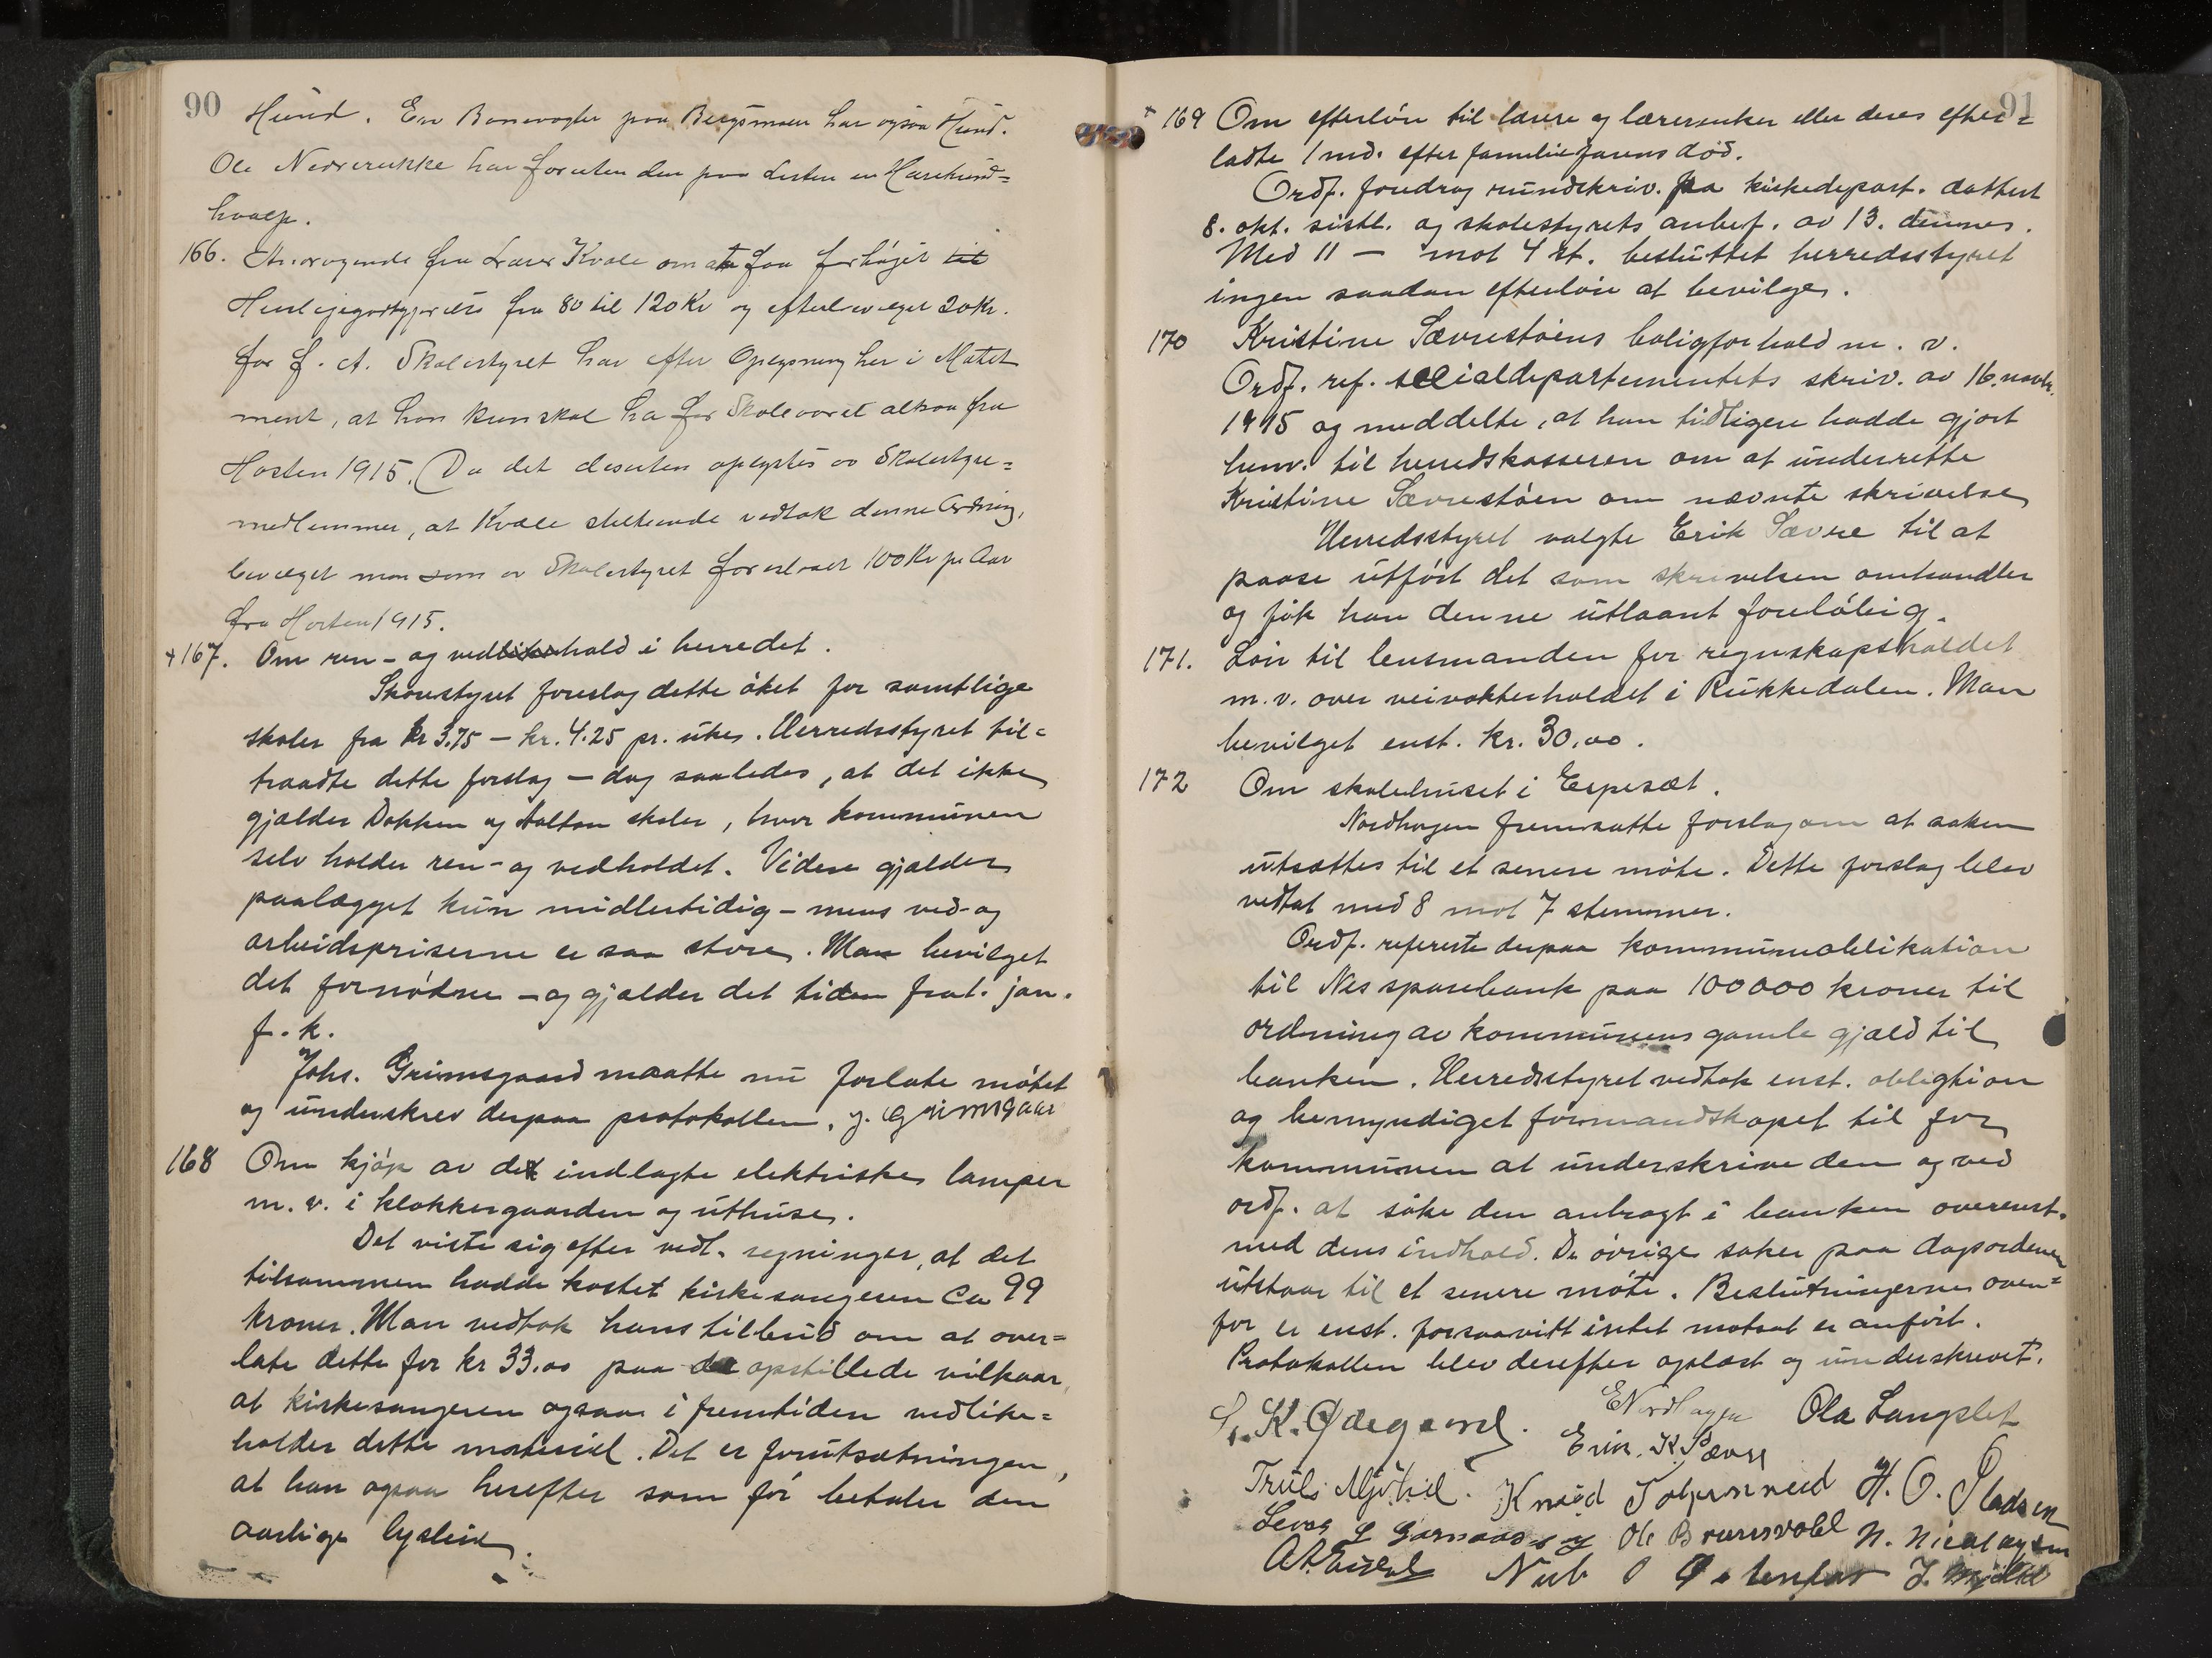 90
Hund. En Banevogter paa Bergsmoen har ogsaa Hund.
Ole Nedrerukke har foruten den paa Listen en Harehund=
hvalp.
166. Andragende fra Lærer Kvale om at faa forhøiet til
fra 80 til 120 Kr og 20 Kr.
for f. A. Skolestyret har efter Oplysning her i Møtet
ment, at han kun skal ha for Skoleaaret altsaa fra
Høsten 1915. Da det desuten oplystes av Skolestyre=
medlemmer, at Kvale vedtok denne Ordning,
bevilget man som av Skolestyret foreslaaet 100 Kr pr Aar
fra Høsten 1915.
+ 167. Om ren- og vedlikehold i herredet.
Skolestyret foreslog dette øket for samtlige
skoler fra kr 3.75 – kr. 4.25 pr. uke. Herredsstyret til=
traadte dette forslag – dog saaledes, at det ikke
gjælder Dokken og skoler, hvor kommunen
selv holder ren- og vedholdet. Videre gjælder
paalægget kun midlertidig – mens ved- og
arbeidspriserne er saa store. Man bevilget
det fornødne – og gjælder det tiden fra 1. jan.
f. k.
Johs. Grimsgaard maatte nu forlate møtet
og underskrev derpaa protokollen. J. Grimsgaar
168 Om kjøp av det indlagte elektriske lamper
m. v. i klokkergaarden og uthuse.
Det viste sig efter vedl. regninger, at det
tilsammen hadde kostet kirkesangeren Ca 99
kroner. Man vedtok hans tilbud om at over=
late dette for kr 33.00 paa de opstillede vilkaar,
at kirkesangeren ogsaa i fremtiden vedlike=
holder dette materiel. Det er forutsætningen,
at han ogsaa herefter som før betaler den
aarlige lysleie.
91
+ 169 Om efterløn til lærere og lærerenker eller deres efter=
ladte 1 md. efter familiefarens død.
Ordf. foredrog rundskriv. fra kirkedepart. dattert
8. okt. sistl. og skolestyrets anbef. av 13. dennes.
Med 11 – mot 4 st. besluttet herredsstyret
ingen saadan efterløn at bevilge.
170 Kristine Sævrestøens boligforhold m. v.
Ordf. ref. socialdepartementets skriv. av 16. novbr.
1915 og meddelte, at han tidligere hadde gjort
henv. til herredskasseren om at underrette
Kristine Sævrestøen om nævnte skrivelse
Herredsstyret valgte Erik Sævre til at
paase utført det som skrivelsen omhandler
og fik han denne utlaant foreløbig.
171. Løn til lensmanden for regnskapsholdet
m. v. over veivokterholdet i Rukkedalen. Man
bevilget enst. kr. 30.00.
172 Om skolehuset i Espesæt.
Nordhagen fremsatte forslag om at saken
utsættes til et senere møte. Dette forslag blev
vedtat med 8 mot 7 stemmer.
Ordf. refererte derpaa kommuneoblikation
til Nes sparebank paa 100000 kroner til
ordning av kommunens gamle gjæld til
banken. Herredsstyret vedtok enst. obligtion
og bemyndiget formandskapet til for
kommunen at underskrive den og ved
ordf. at søke den anbragt i banken overenst.
med dens indhold. De øvrige saker paa dagsordenen
utstaar til et senere møte. Beslutningerne oven=
for er enst. forsaavitt intet motsat er anført.
Protokollen blev derefter oplæst og underskrevet.
K. Ødegaard. E Nordhagen Ola Langslet
Erik K. Sævre
Truls Mjøtvid. Knud H. O. Pladsen
Levor L Garnaas Ole Brunsvold N. Nicolaysen
Nub O